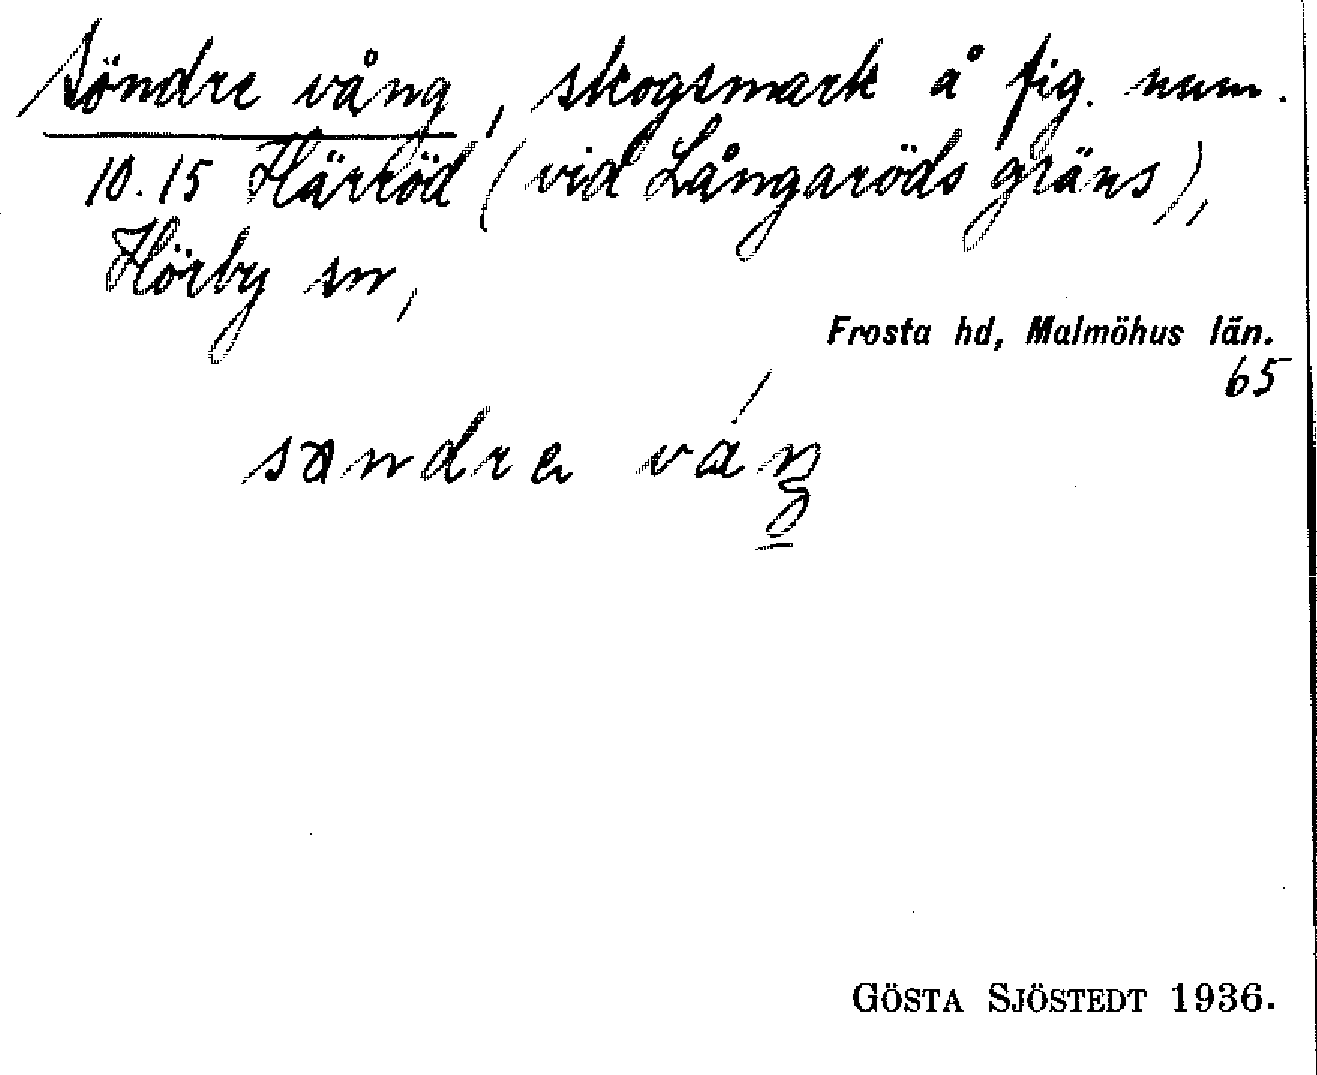 Söndre vång, skogsmark å fig. num.
10.15 Härröd (vid Långaröds gräns),
Hörby sn,
Frosta hd, Malmöhus län.
65
GÖSTA SJÖSTEDT 1936.